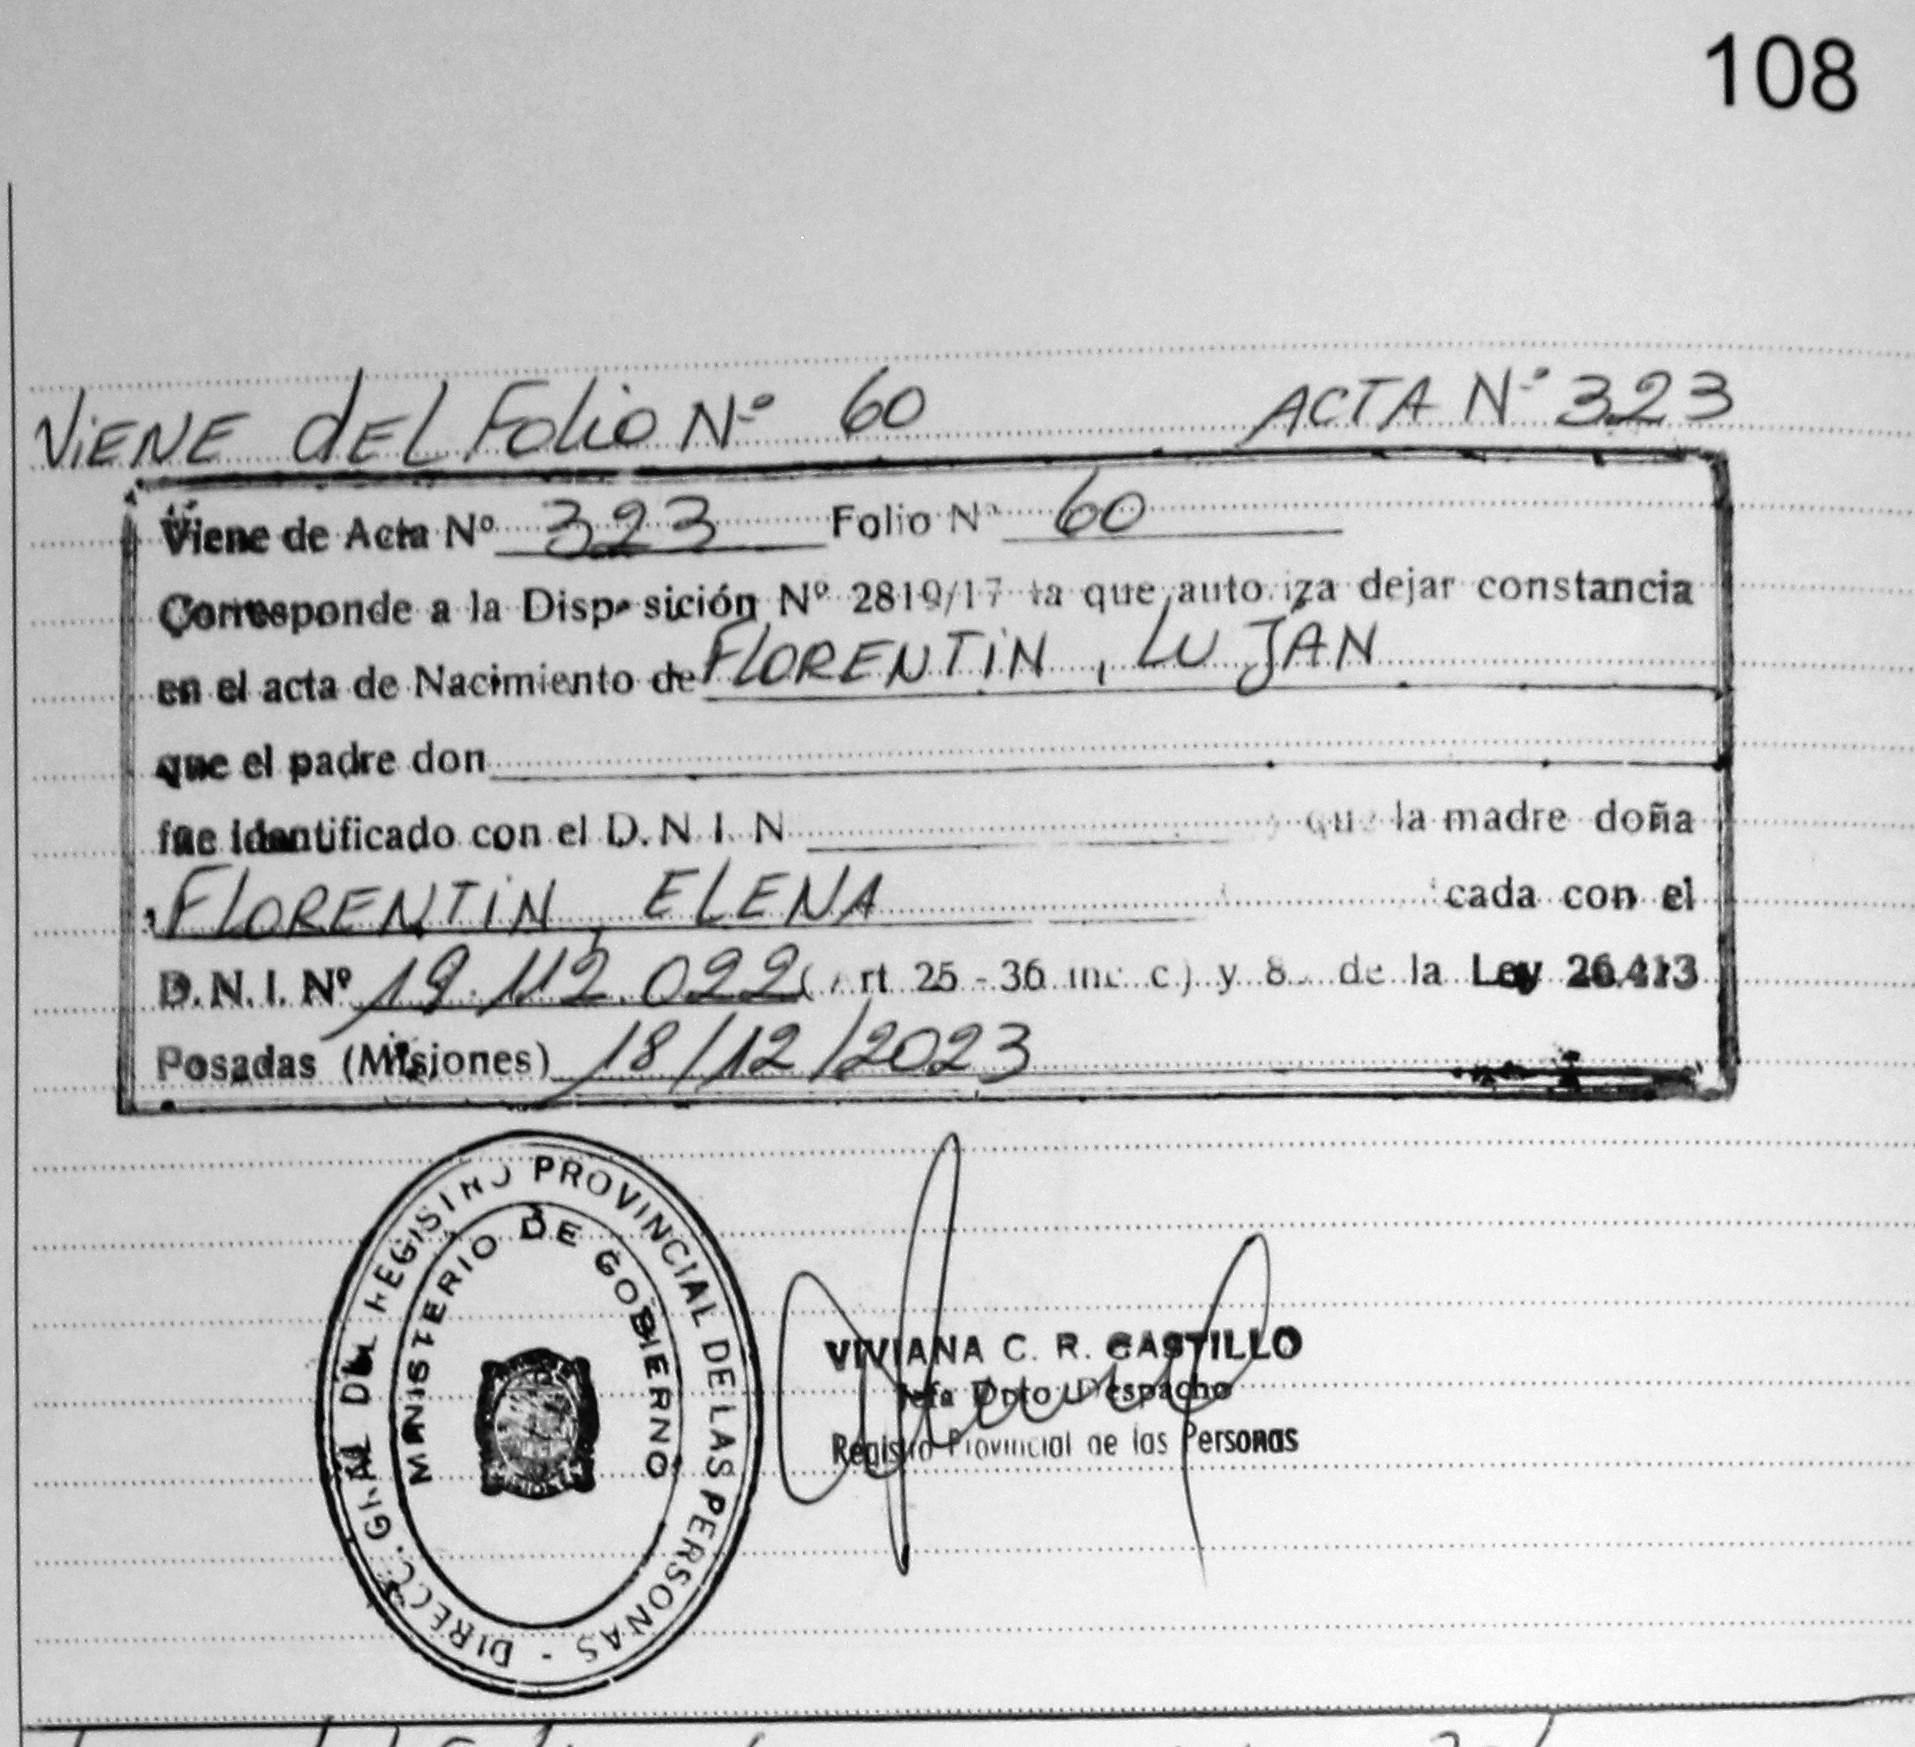 108
ViENE dEL Folio N° 60 ACTA N° 323
Viene de Acta Nº 323 Folio Nº 60
Corresponde a la Disposición Nº 2819/17 la que autoriza dejar constancia
en el acta de Nacimiento de FLORENTiN, LUJAN
que el padre don
fue identificado con el D.N.I. N que la madre doña
FLORENTiN, ELENA cada con el
D.N.I. Nº 19.112.022 (Art 25 - 36 inc c) y 8 de la Ley 26.413
Posadas (Misiones) 18/12/2023
DIRECC. GRAL DEL REGISTRO PROVINCIAL DE LAS PERSONAS -
MINISTERIO DE GOBIERNO
VIVIANA C. R. CASTILLO
Jefa Dpto Despacho
Registro Provincial de las Personas